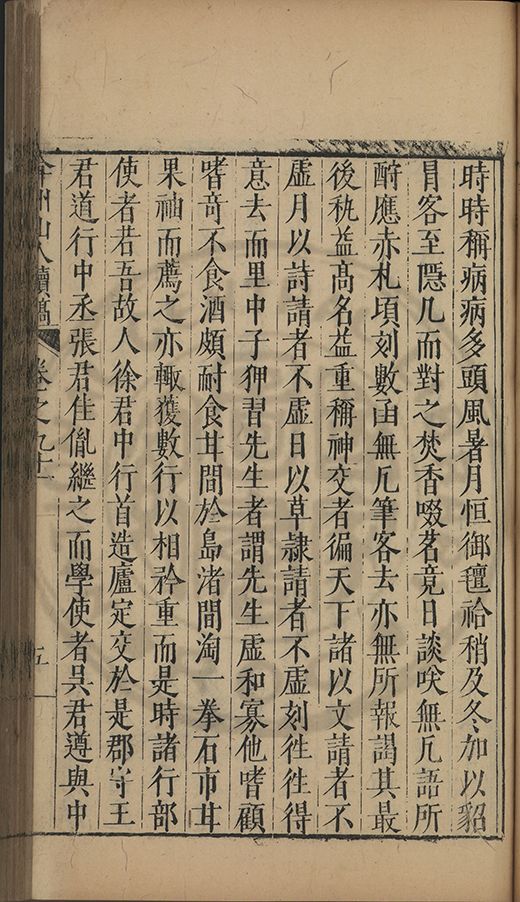 時時稱病病多頭風暑月恒御氊袷稍及冬加以貂
冐客至隱几而對之焚香啜茗竟日談咲無凢語所
酧應赤札頃刻數函無凢筆客去亦無所報謁其最
後秇益髙名益重稱神交者徧天下諸以文請者不
虛月以詩請者不虛日以草隷請者不虛刻徃徃得
意去而里中子狎習先生者謂先生虛和寡他嗜顧
嗜竒不食酒頗耐食甘間於島渚間淘一拳石市甘
果袖而薦之亦輙獲數行以相矜重而是時諸行部
使者若吾故人徐君中行首造廬定交於是郡守王
君道行中丞張君佳胤繼之而學使者吳君遵與中
弇州山人續稿 卷之九十 五